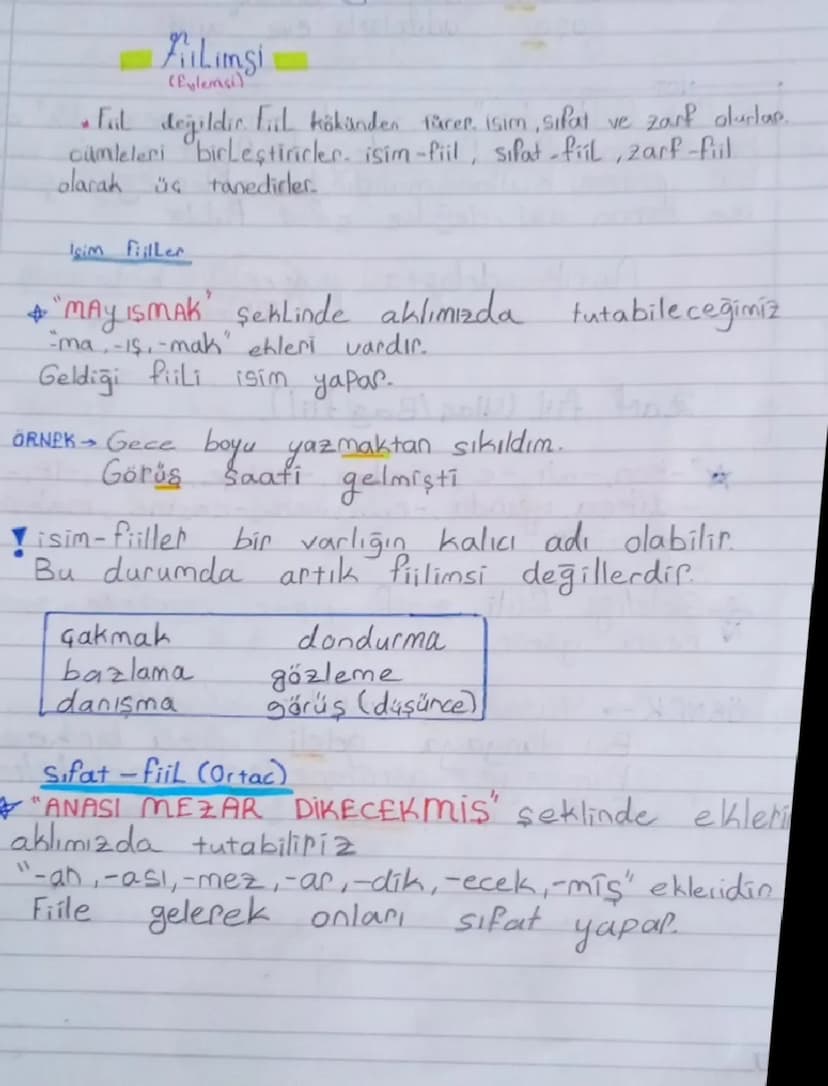 Fiilimsi
(Eylemsi)
• Fiil değildir. Fiil kökünden türer. isim, sıfat ve zarf olurlar.
cümleleri birleştirirler. isim-fiil, sıfat-fiil, zarf-fiil
olarak üç tanedirler.
isim fiiller
"MAyışMAK" şeklinde aklımızda tutabileceğimiz
"-ma, -ış, -mak" ekleri vardır.
Geldiği fiili isim yapar.
ÖRNEK → Gece boyu yazmaktan sıkıldım.
Görüş saati gelmişti
! isim-fiiller bir varlığın kalıcı adı olabilir.
Bu durumda artık fiilimsi değillerdir.
çakmak dondurma
bazlama gözleme
danışma görüş (düşünce)
Sıfat-fiil (Ortaç)
"ANASI MEZAR DİKECEKMİŞ" şeklinde ekleri
aklımızda tutabiliriz
"-an, -ası, -mez, -ar, -dik, -ecek, -miş" ekleridir.
Fiile gelerek onları sıfat yapar.